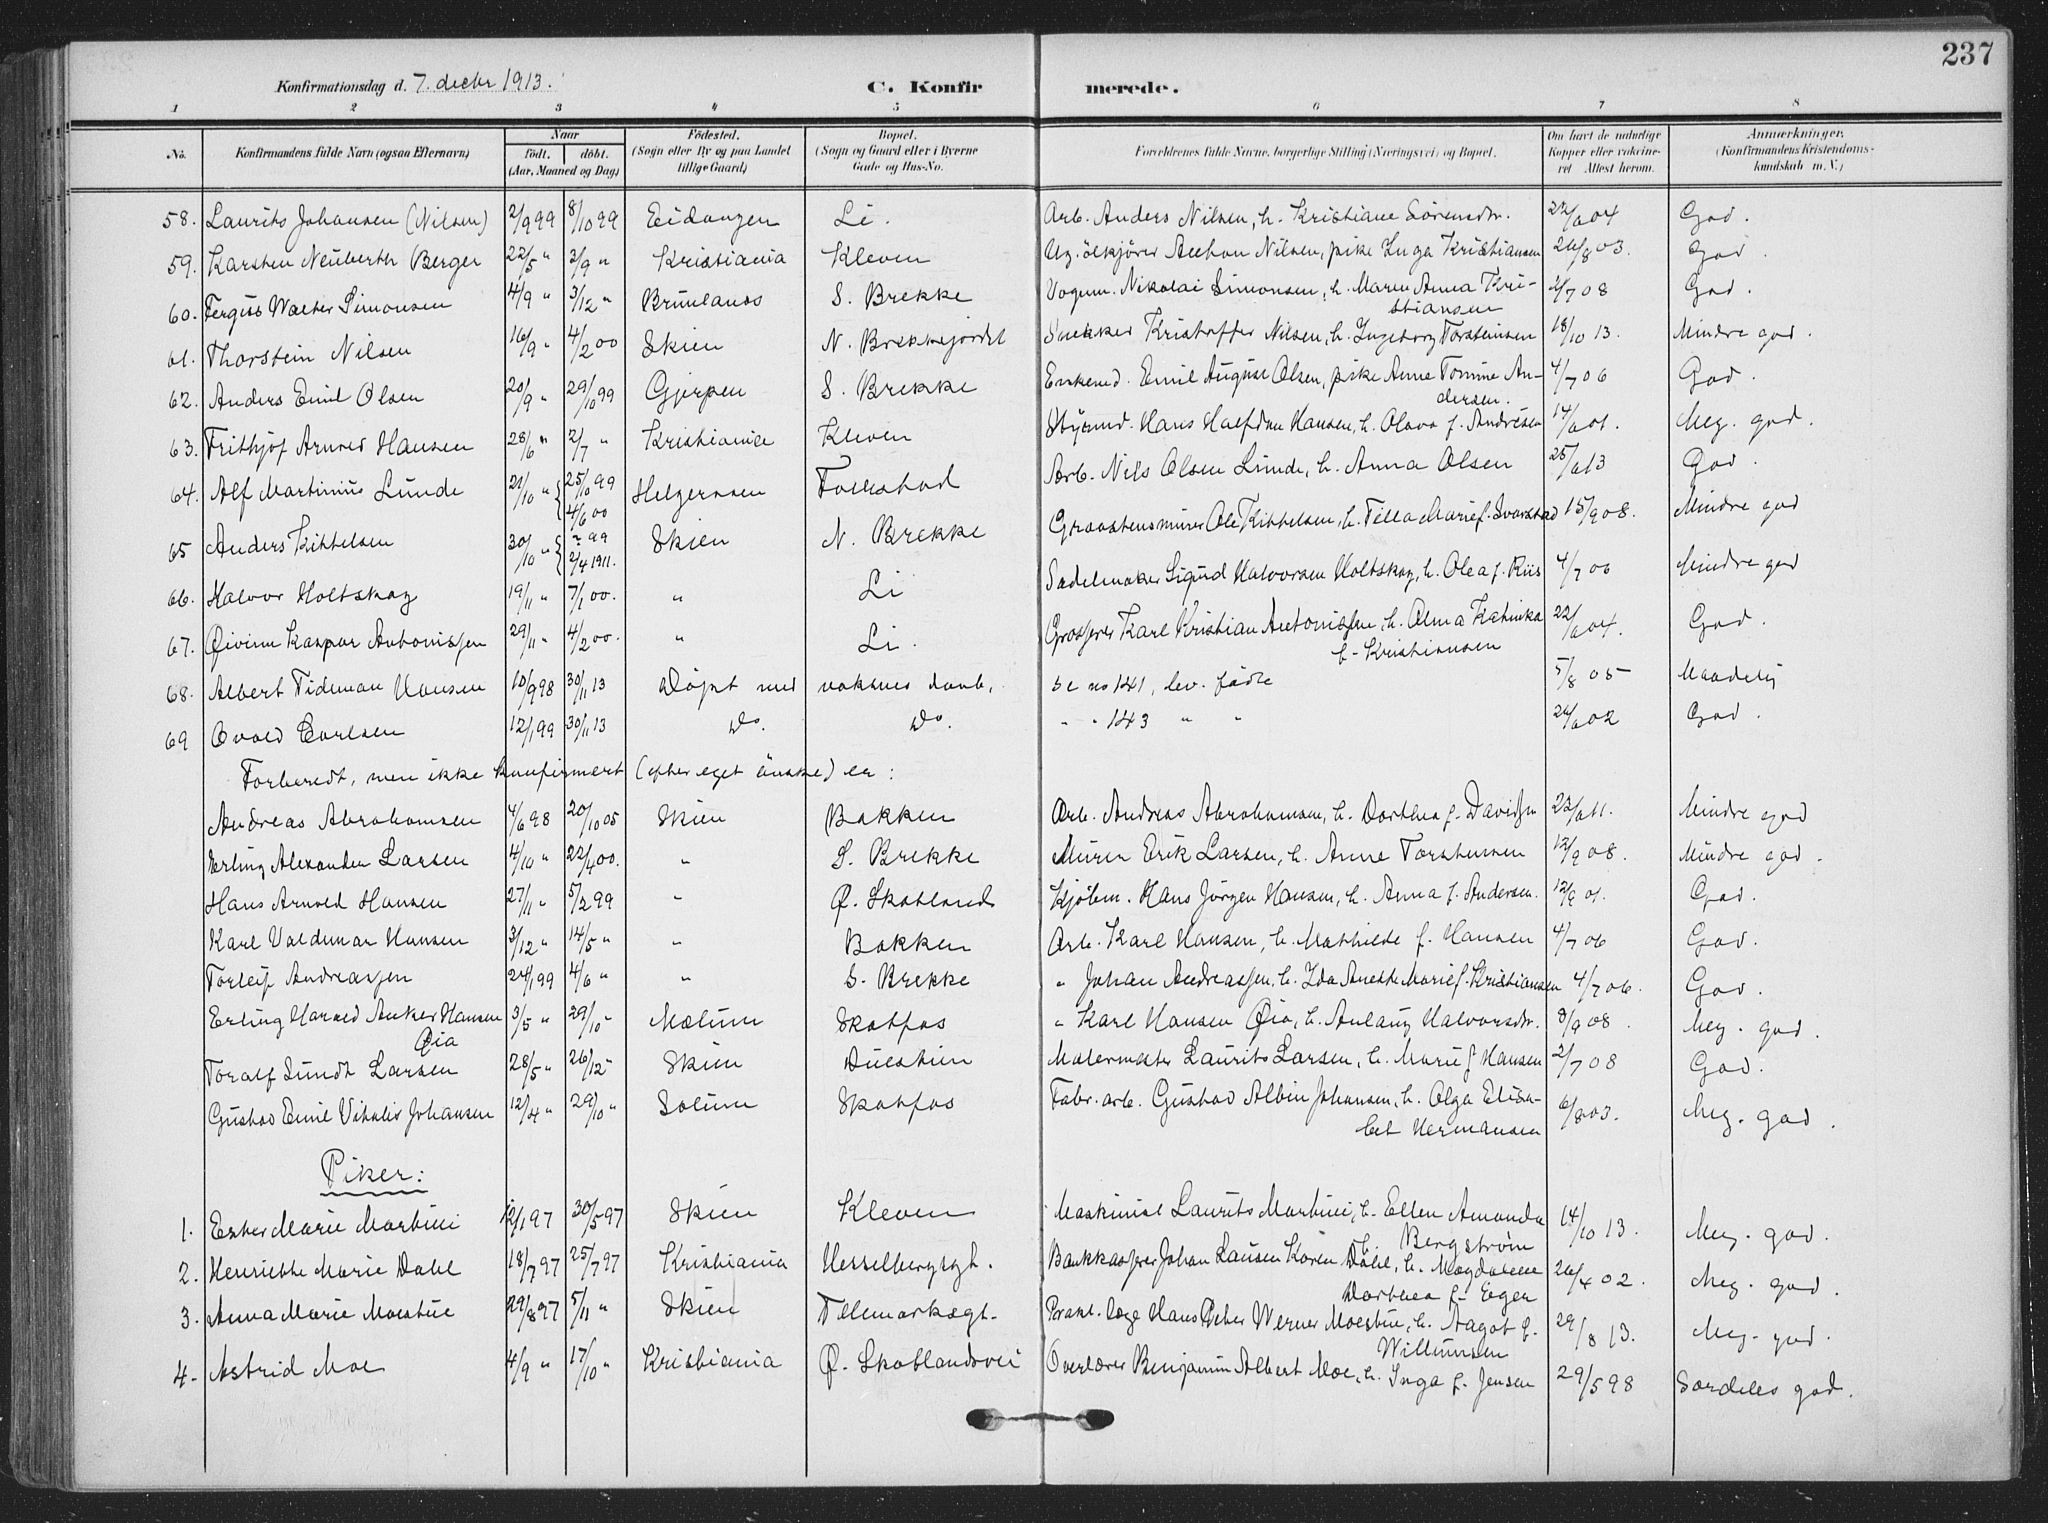 237
Konfirmationsdag d. 7. decbr 1913.
C. Konfirmerede.
1 2 3 4 5 6 7 8
No. Konfirmandens fulde Navn (ogsaa Efternavn) Naar født. døbt. (Aar, Maaned og Dag) Fødested. (Sogn eller By og paa Landet tillige Gaard) Bopæl. (Sogn og Gaard eller i Byerne Gade og Hus-No. Forældrenes fulde Navne, borgerlige Stilling (Næringsvei) og Bopæl. Om havt de naturlige Kopper eller vakcineret Attest herom. Anmærkninger. (Konfirmandens Kristendomskundskab m. V.)
58. Laurits Johansen (Nilsen) 2/9 99 8/10 99 Eidanger Li. Arb. Anders Nilsen, h. Kristiane Sörensdr. 22/6 04 God.
59. Karsten Neuberth Berger 22/5 " 3/9 " Kristiania Kleven Ug. ölkjörer Anthon Nilsen, pike Inga Kristiansen 26/8 03. God.
60. Fergus Walter Simonsen 4/9 " 3/12 " Brunlanes S. Brekke Vognm. Nikolai Simonsen, h. Maren Anna Kri-
stiansen 2/7 08 God.
61. Thorstein Nilsen 16/9 " 4/2 00 Skien N. Brekkejordet Snekker Kristoffer Nilsen, h. Ingeborg Torsteinsen 18/10 13. Mindre god.
62. Anders Emil Olsen 20/9 " 29/10 99 Gjerpen S. Brekke Enkemd. Emil August Olsen, pike Anne Tomine An-
dersen. 4/7 06 God.
63. Frithjof Arnved Hansen 28/6 " 2/7 " Kristiania Kleven Styrmd. Hans Halfdan Hansen, h. Olava f. Andresen 14/6 01. Meg. god.
64. Alf Martinius Lunde 21/10 " 25/10 99 4/6 00 Helgeroaen Follestad Arb. Nils Olsen Lunde, h. Anna Olsen 25/6 13 God.
65 Anders Kittelsen 30/10 " ? 99 2/4 1911. Skien N. Brekke Graastensmurer Ole Kittelsen, h. Tilla Marie f. Svarstad 15/9 08. Mindre god
66. Halvor Holtskog 19/11 " 7/1 00. " Li Sadelmaker Sigurd Halvorsen Holtskog, h. Olea f. Riis 4/7 06 Mindre god
67. Øivinn Kaspar Antonissen 29/11 " 4/2 00. " Li. Grosserer Karl Kristian Antonissen, h. Alma Katinka
f. Kristiansen 22/6 04. God.
68. Albert Tideman Hansen 10/9 98 30/11 13 Døpt med voksnes daab, se no 141, lev. fødte 5/8 05 Maadelig
69 Ovald Carlsen 12/1 99 30/11 13 Do. Do. " " 143 " " 24/6 02 God.
Forberedt, men ikke konfirmert (efter eget önske) er:
Andreas Abrahamsen 4/6 98 20/10 05 Skien Bakken Arb. Andreas Abrahamsen, h. Dorthea f. Davidsen 22/6 11. Mindre god
Erling Alexander Larsen 4/10 " 22/4 00. " S. Brekke Murer Erik Larsen, h. Anne Torstensen 12/9 08. Mindre god.
Hans Arnved Hansen 27/11 " 5/2 99 " Ø. Skotland Kjöbm. Hans Jörgen Hansen, h. Anna f. Andersen. 12/9 01. God.
Karl Valdemar Hansen 3/12 " 14/5 " " Bakken Arb. Karl Hansen, h. Mathilde f. Hansen 4/7 06 God.
Torleif Andreassen 24/1 99 4/6 " " S. Brekke " Johan Andreassen, h. Ida Anette Marie f. Kristiansen 4/7 06. God.
Erling Harved Anker Hansen
Øia 3/5 " 29/10 " Mælum Skotfos " Karl Hansen Øia, h. Anlaug Halvorsdr. 8/9 08. Meg. god.
Toralf Sundt Larsen 28/5 " 26/12 " Skien Duestien Malermester Laurits Larsen, h. Marie f. Hansen 2/7 08 God.
Gustav Emil Vitalis Johansen 12/4 " 29/10 " Solum Skotfos Fabr. arb. Gustav Albin Johansen, h. Olga Elisa-
bet Hermansen 6/8 03. Meg. god.
Piker:
1. Ester Marie Martini 12/1 97 30/5 97 Skien Kleven Maskinist Laurits Martini, h. Ellen Amanda
f. Bergström 14/10 13. Meg. god.
2. Henriette Marie Dahl 18/7 97 25/7 97 Kristiania Hesselbergsgt. Bankkasserer Johan Lausen Koren Dahl, h. Magdalene
Dorthea f. Eger 26/4 02. Meg. god.
3. Anna Marie Moestue 29/8 97 5/11 " Skien Telemarksgt. Prakt. læge Hans Peter Werner Moestue, h. Aagot f.
Willumsen 29/8 13. Meg. god.
4. Astrid Moe 4/9 " 17/10 " Kristiania Ø. Skotlandsvei Overlærer Benjamin Albert Moe, h. Inga f. Jensen 29/5 98 Særdeles god.